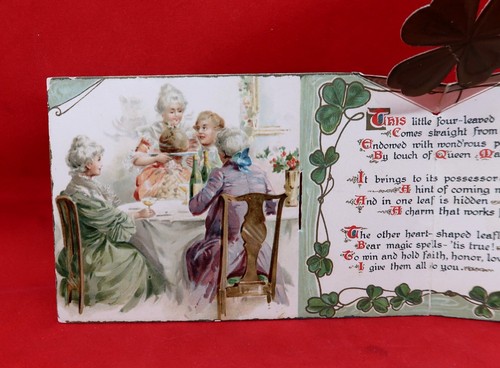 THIS little four-leaved
Comes straight from
Endowed with wond'rous p
By touch of Queen M
It brings to its possessor
A hint of coming
And in one leaf is hidden
A charm that works
The other heart-shaped leafl
Bear magic spells-'tis true!
To win and hold faith, honor, lov
I give them all to you.